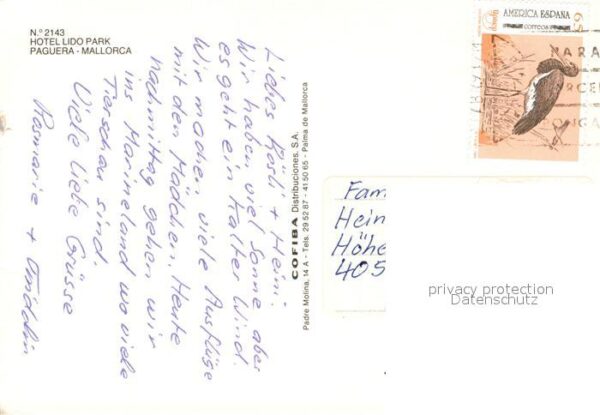 N.º 2143
HOTEL LIDO PARK
PAGUERA - MALLORCA
Liebes Rösli + Heini.
Wir haben viel Sonne aber
es geht ein kalter Wind.
Wir machen viele Ausflüge
mit den Mädchen. Heute
nachmittag gehen wir
ins Marineland wo viele
Tierschau sind.
Viele liebe Grüsse
Rosmarie +
COFIBA Distribuciones, S.A.
Padre Molina, 14 A - Tels. 29 52 87 - 41 50 65 - Palma de Mallorca
AMERICA ESPAÑA
CORREOS
65
PARA
Fam
Hein
Höhe
405
privacy protection
Datenschutz